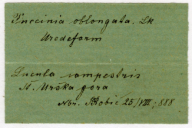 Puccinia oblongata. Lk
Uredoform
Luzula campestris
N. Urška gora
Nov. Robič 25/VII. 888